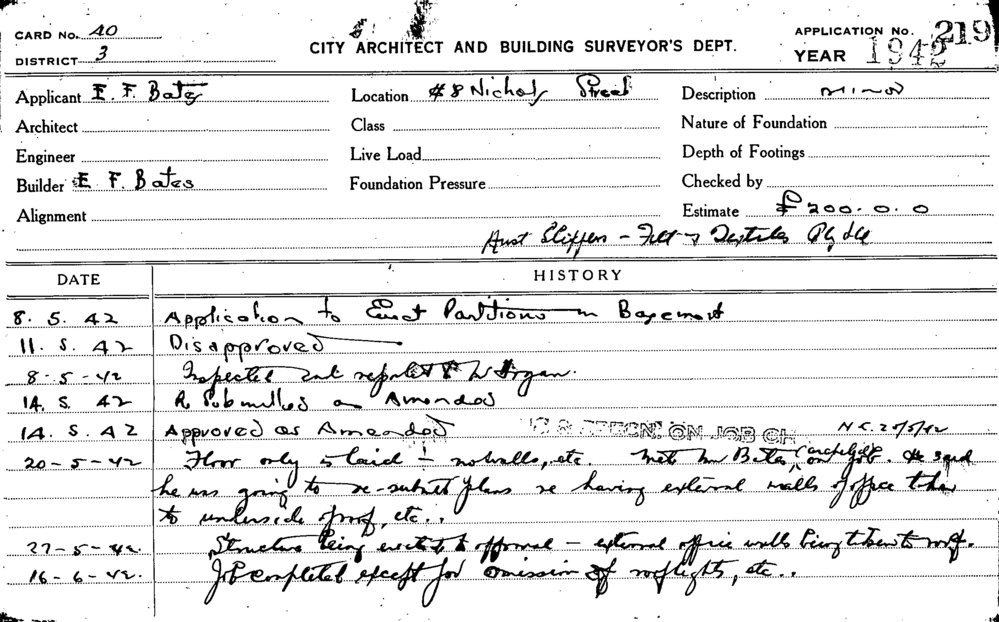 CARD No. 40
DISTRICT 3
CITY ARCHITECT AND BUILDING SURVEYOR'S DEPT.
APPLICATION No. 219
YEAR 1942
Applicant E. F. Bates
Location #8 Nicholas Street
Description minor
Architect
Class
Nature of Foundation
Engineer
Live Load
Depth of Footings
Builder E. F. Bates
Foundation Pressure
Checked by
Alignment
Estimate £200.0.0
Aust Slippers - Felt & Textiles Pty Ltd
DATE
HISTORY
8. 5. 42 Application to Erect Partitions in Basement
11. 5. 42 Disapproved
8-5-42 Inspected and reported
14. 5. 42 Re Submitted as Amended
14. 5. 42 Approved as Amended ON JOB CH N.C. 20/5/42
20-5-42 Floor only is laid - no walls, etc Mr Bates on job. He said
he was going to re-submit plans re having external walls of office taken
to underside of roof, etc..
27-5-42. Structure being erected to approval - external office walls being taken to roof.
16-6-42. Job completed except for omission of rooflights, etc..